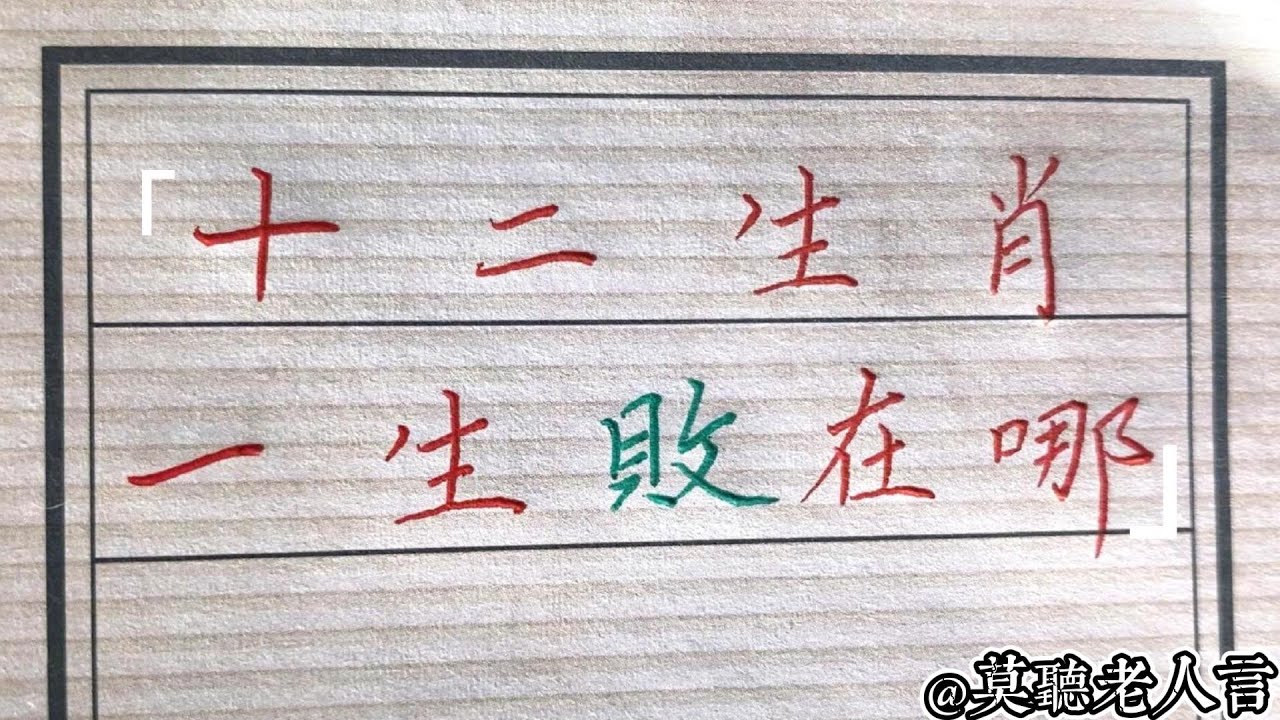 「十二生肖
一生敗在哪」
@莫聽老人言